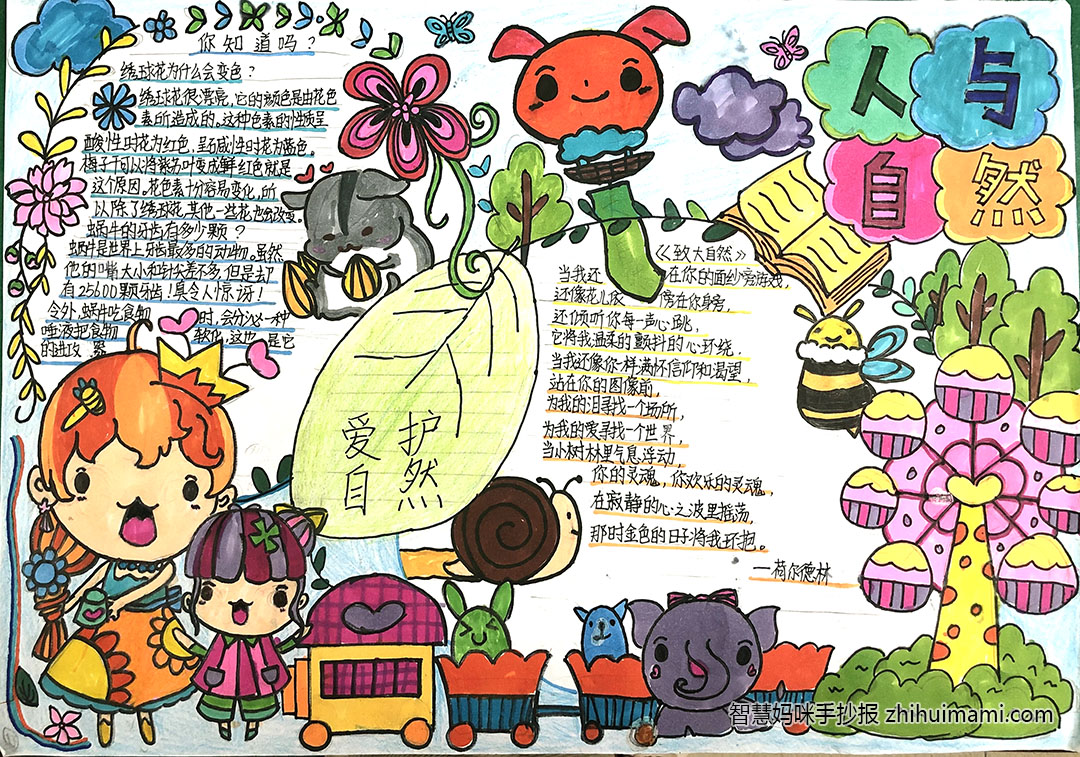 人与
自然
你知道吗？
绣球花为什么会变色？
绣球花很漂亮，它的颜色是由花色
素所造成的。这种色素的性质呈
酸性时花为红色，呈碱性时花为蓝色。
梅子可以将紫苏叶变成鲜红色就是
这个原因。花色素十分容易变化，所
以除了绣球花，其他一些花也会改变。
蜗牛的牙齿有多少颗？
蜗牛是世界上牙齿最多的动物。虽然
他的嘴大小和针尖差不多，但是却
有25600颗牙齿！真令人惊讶！
令外，蜗牛吃食物 时，会分泌一种
唾液把食物 软化，这也是它
的进攻
爱护
自然
《致大自然》
当我还 在你的面纱旁游戏，
还像花儿依 傍在你身旁，
还倾听你每一声心跳，
它将我温柔的颤抖的心环绕，
当我还像你一样满怀信仰和渴望，
站在你的图像前，
为我的泪寻找一个场所，
为我的爱寻找一个世界，
当小树林里气息浮动，
你的灵魂，你欢乐的灵魂，
在寂静的心之波里摇荡，
那时金色的日子将我环抱。
—荷尔德林
智慧妈咪手抄报 zhihuimami.com